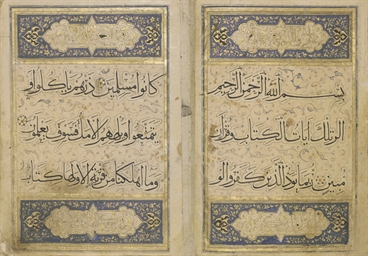 بسم الله الرحمن الرحيم
الر تلك ايات الكتاب وقرآن
مبين ربما يود الذين كفروا لو
كانوا مسلمين ذرهم ياكلوا و
يتمتعوا ويلههم الامل فسوف يعلمون
وما اهلكنا من قرية الا ولها كتاب